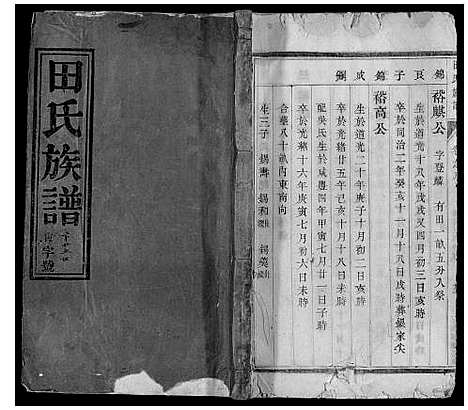 田氏族譜
字號
錦 裕麒公 字登麟 有田一畝五分入祭
良 生於道光十八年戊戌又四月初三日亥時
子 卒於同治二年癸亥十一月十八日戌時葬銀家尖
錦 裕高公
成 生於道光二十年庚子十月初二日亥時
卒於光緒廿五年己亥十月十八日辰時
配吳氏生於咸豐四年甲寅七月廿三日
卒於光緒十六年庚寅七月初六日未時
合葬八十畝內東南向
生三子 錫壽 錫和 錫